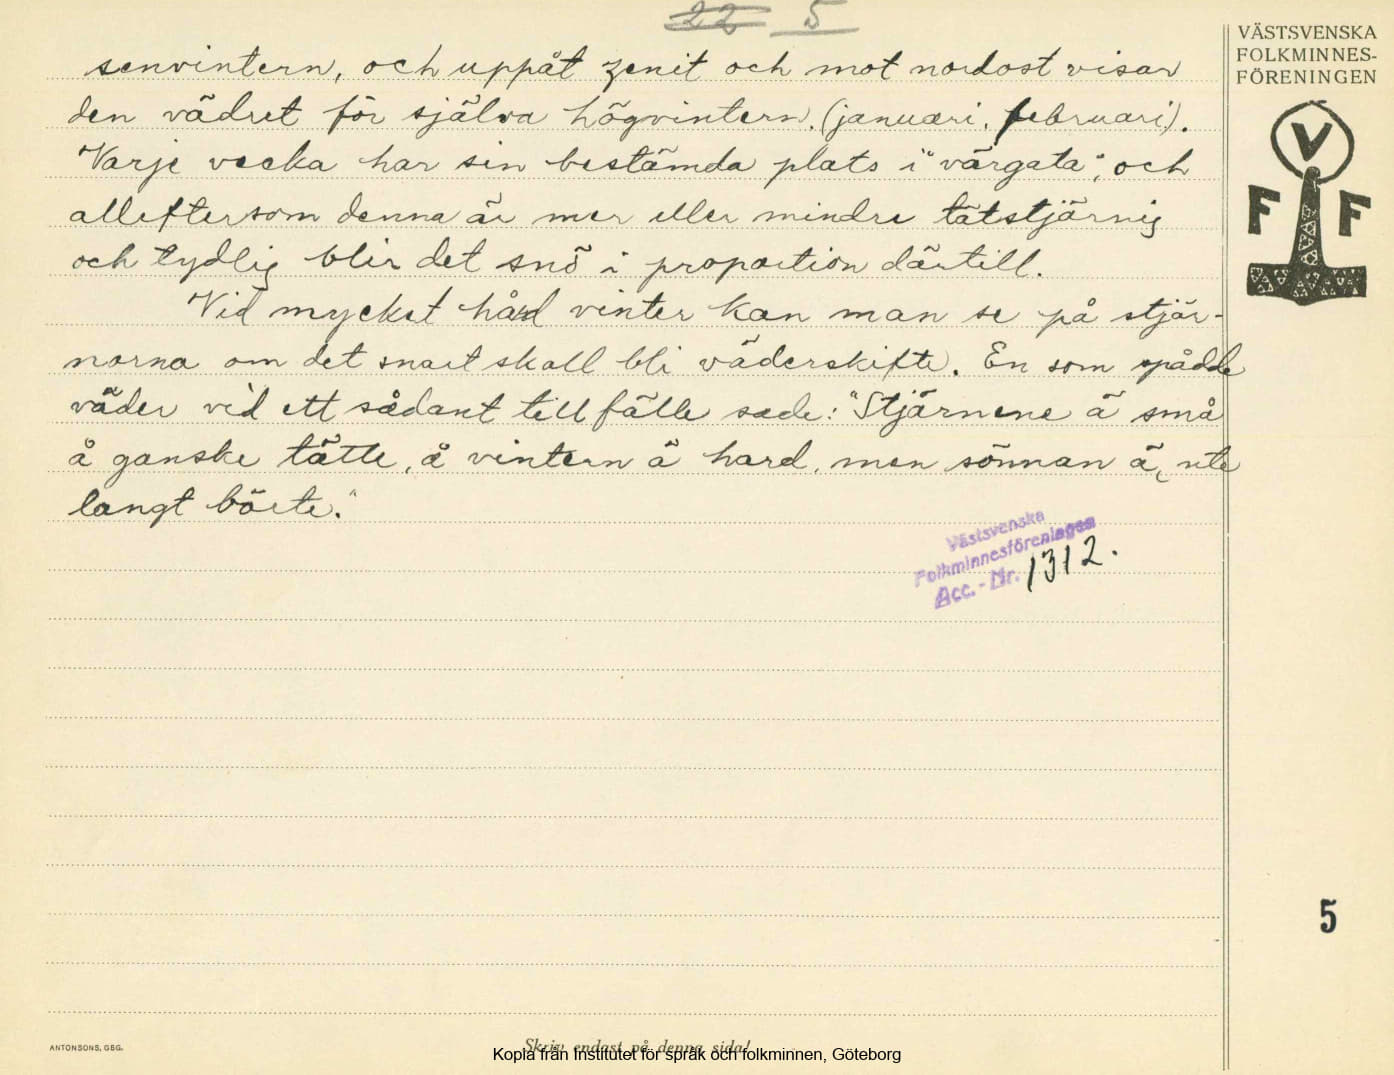 22 5
senvintern, och uppåt zenit och mot nordost visar
den vädret för själva högvintern. (januari, februari).
Varje vecka har sin bestämda plats i "värgata", och
alleftersom denna är mer eller mindre tätstjärnig
och tydlig blir det snö i proportion därtill.
Vid mycket hård vinter kan man se på stjär-
norna om det snart skall bli väderskifte. En som spådde
väder vid ett sådant tillfälle sade: "Stjärnene ä små
å ganske tätte, å vintern ä hard, men sönnan ä, nte
langt börte."
Västsvenska
Folkminnesföreningen
Acc.-Nr. 1312.
VÄSTSVENSKA
FOLKMINNES-
FÖRENINGEN
V
F F
5
ANTONSONS, GBG.
Skriv endast på denna sida!
Kopia från Institutet för språk och folkminnen, Göteborg